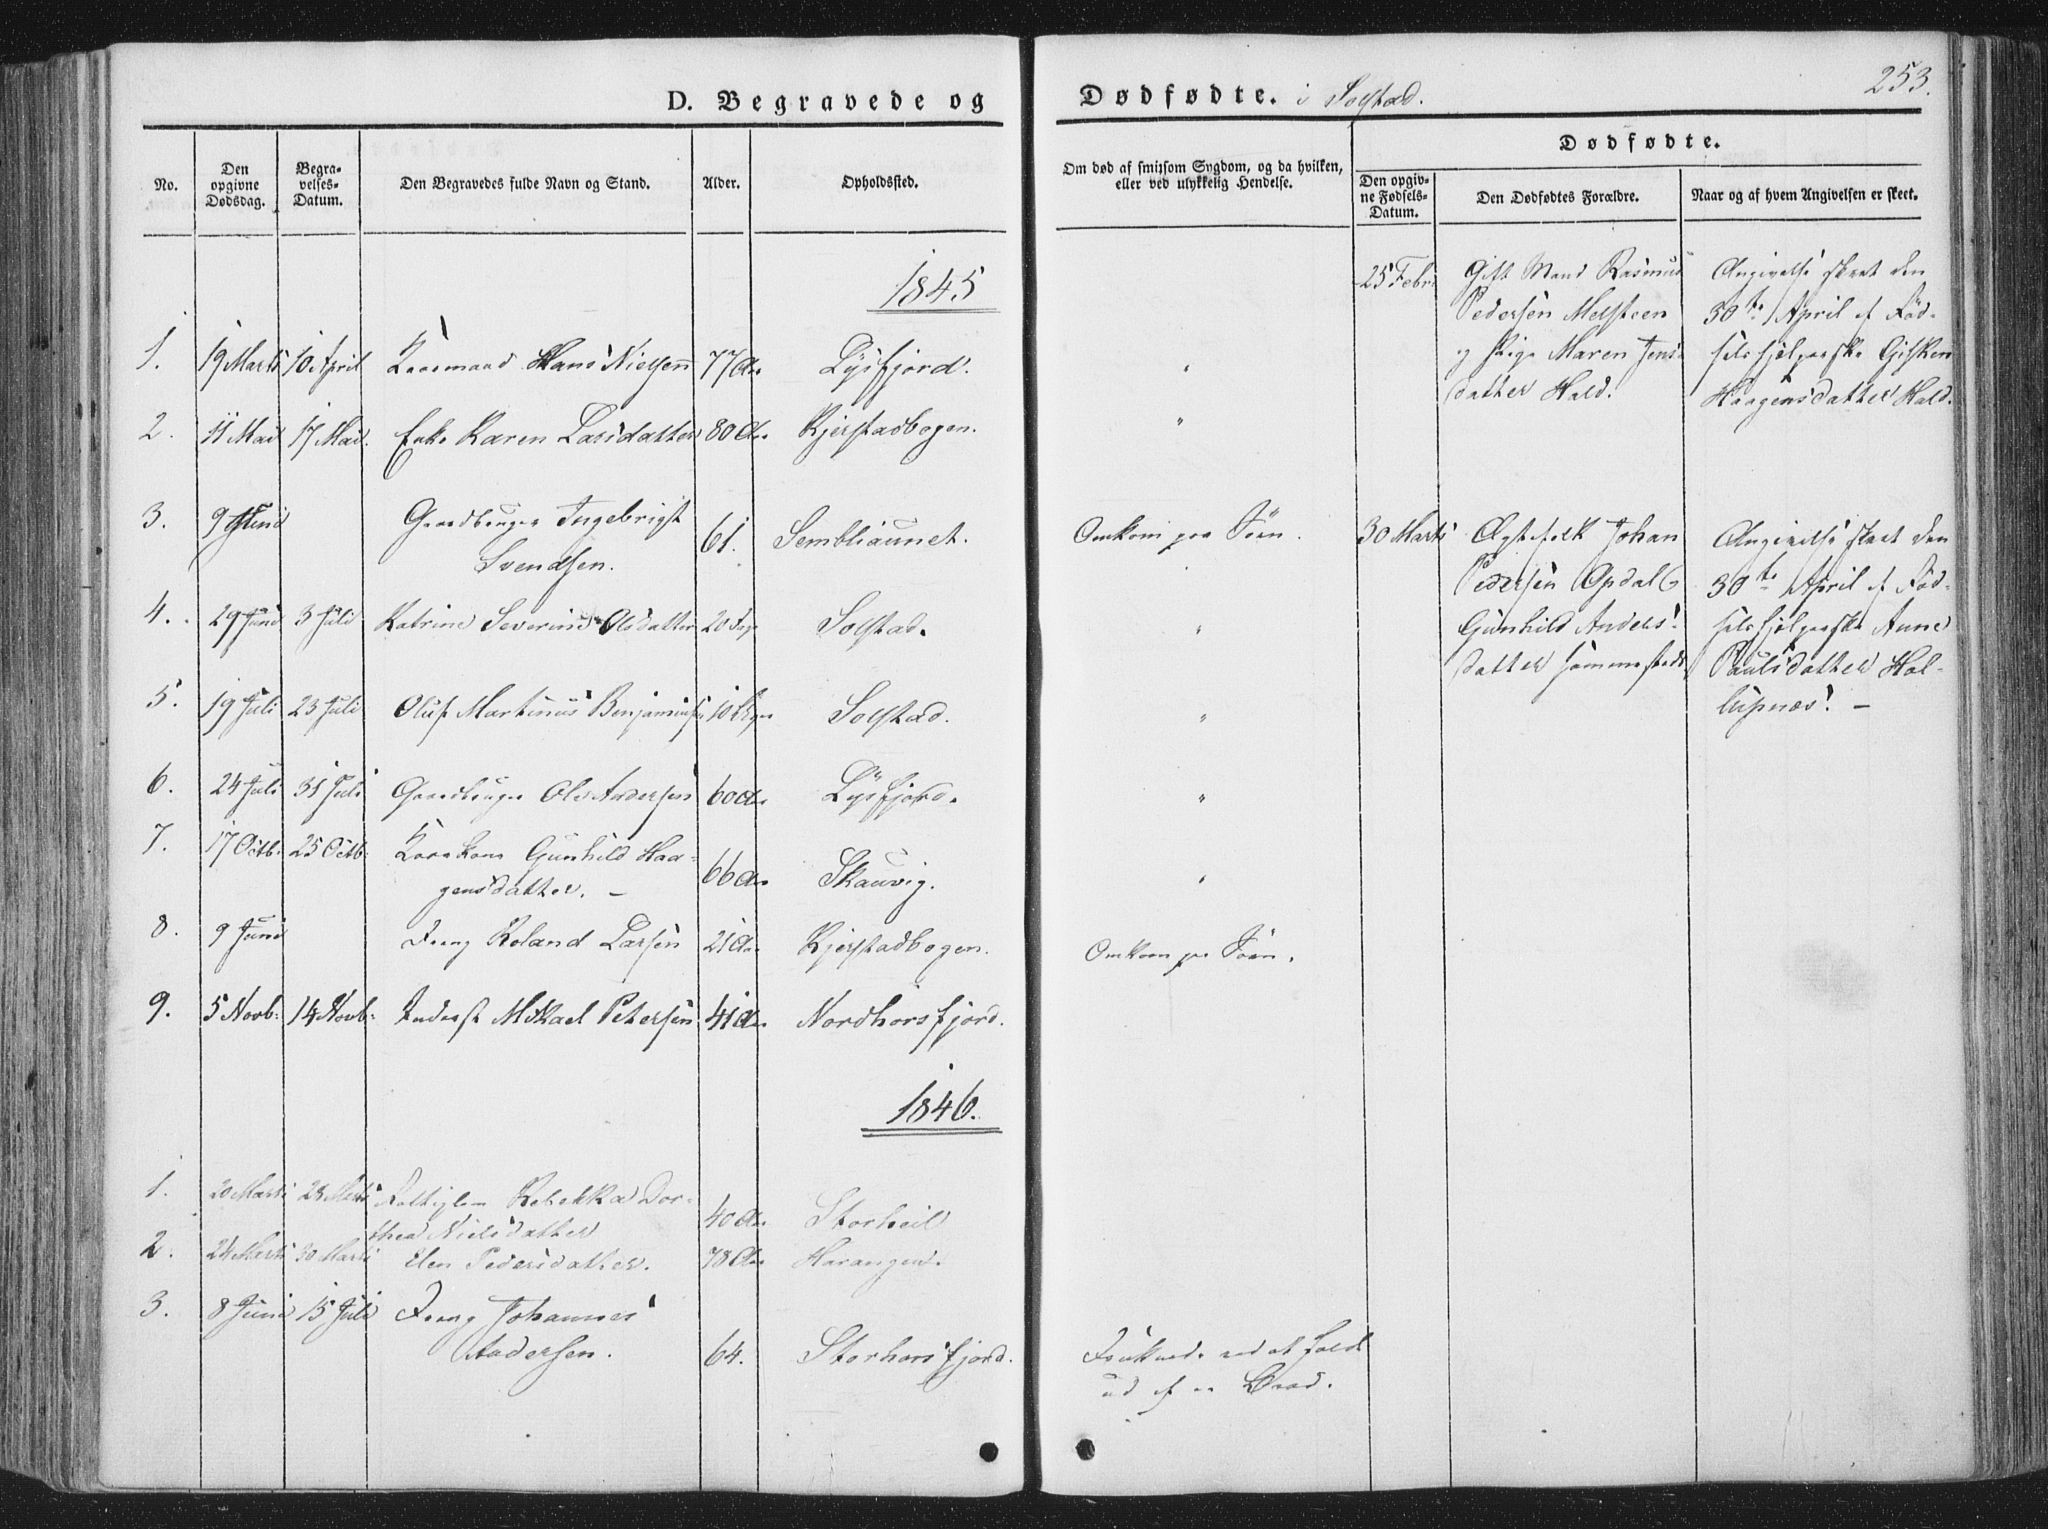 D. Begravede og Dødfødte. i Solstad. 253.
No. | Den opgivne Dødsdag. | Begravelses-Datum. | Den Begravedes fulde Navn og Stand. | Alder. | Opholdssted. | Om død af smitsom Sygdom, og da hvilken, eller ved ulykkelig Hendelse.
Dødfødte.
Den opgivne Fødsels-Datum. | Den Dødfødtes Forældre. | Naar og af hvem Angivelsen er skeet.
1845
1. 19 Marts 10 April Kaarmand Hans Nielsen 77 Aar Lysfjord. "
2. 11 Mai 17 Mai. Enke Karen Larsdatter 80 Aar Kjerstadbogen. "
3. 9 Juni Gaardbruger Ingebrigt
Svendsen. 61. Sembliaunet. Omkom paa Søen.
4. 29 Juni 3 Juli Katrine Severine Olsdatter 20 Dage Solstad. "
5. 19 Juli 23 Juli Oluf Martinus Benjaminsen 10 Uger Solstad. "
6. 24 Juli 31 Juli Gaardbruger Ole Andersen 60 Aar Lysfjord. "
7. 17 Octb: 25 Octb: Kaarkone Gunhild Haa-
gensdatter. — 66 Aar Skauvig. "
8. 9 Juni Dreng Roland Larsen 21 Aar Kjerstadbogen. Omkom paa Søen.
9. 5 Novb: 14 Novb: Inderst Mikael Petersen 41 Aar Nordhorsfjord.
1846.
1. 20 Marts 28 Marts Rebekka Dor-
thea Nielsdatter 40 Aar Storheil
2. 24 Marts 30 Marts Elen Pedersdatter. 78 Aar Harangen.
3. 8 Juni 15 Juli Dreng Johannes
Andersen. 64. Storhorsfjord. Druknede ved at falde
ud af en Baad.
25 Febr
Gift Mand Rasmus
Pedersen Melsteen
og Pige Maren Jens-
datter Hald.
Angivelse skeet den
30te April af Fød-
selshjelperske Gisken
Haagensdatter Hald.
30 Marts
Ægtefolk Johan
Pedersen Opdal &
Gunhild Anders-
datter
Angivelse skeet den
30te April af Fød-
selshjelperske Anne
Paulsdatter Hal-
lupnæs. —